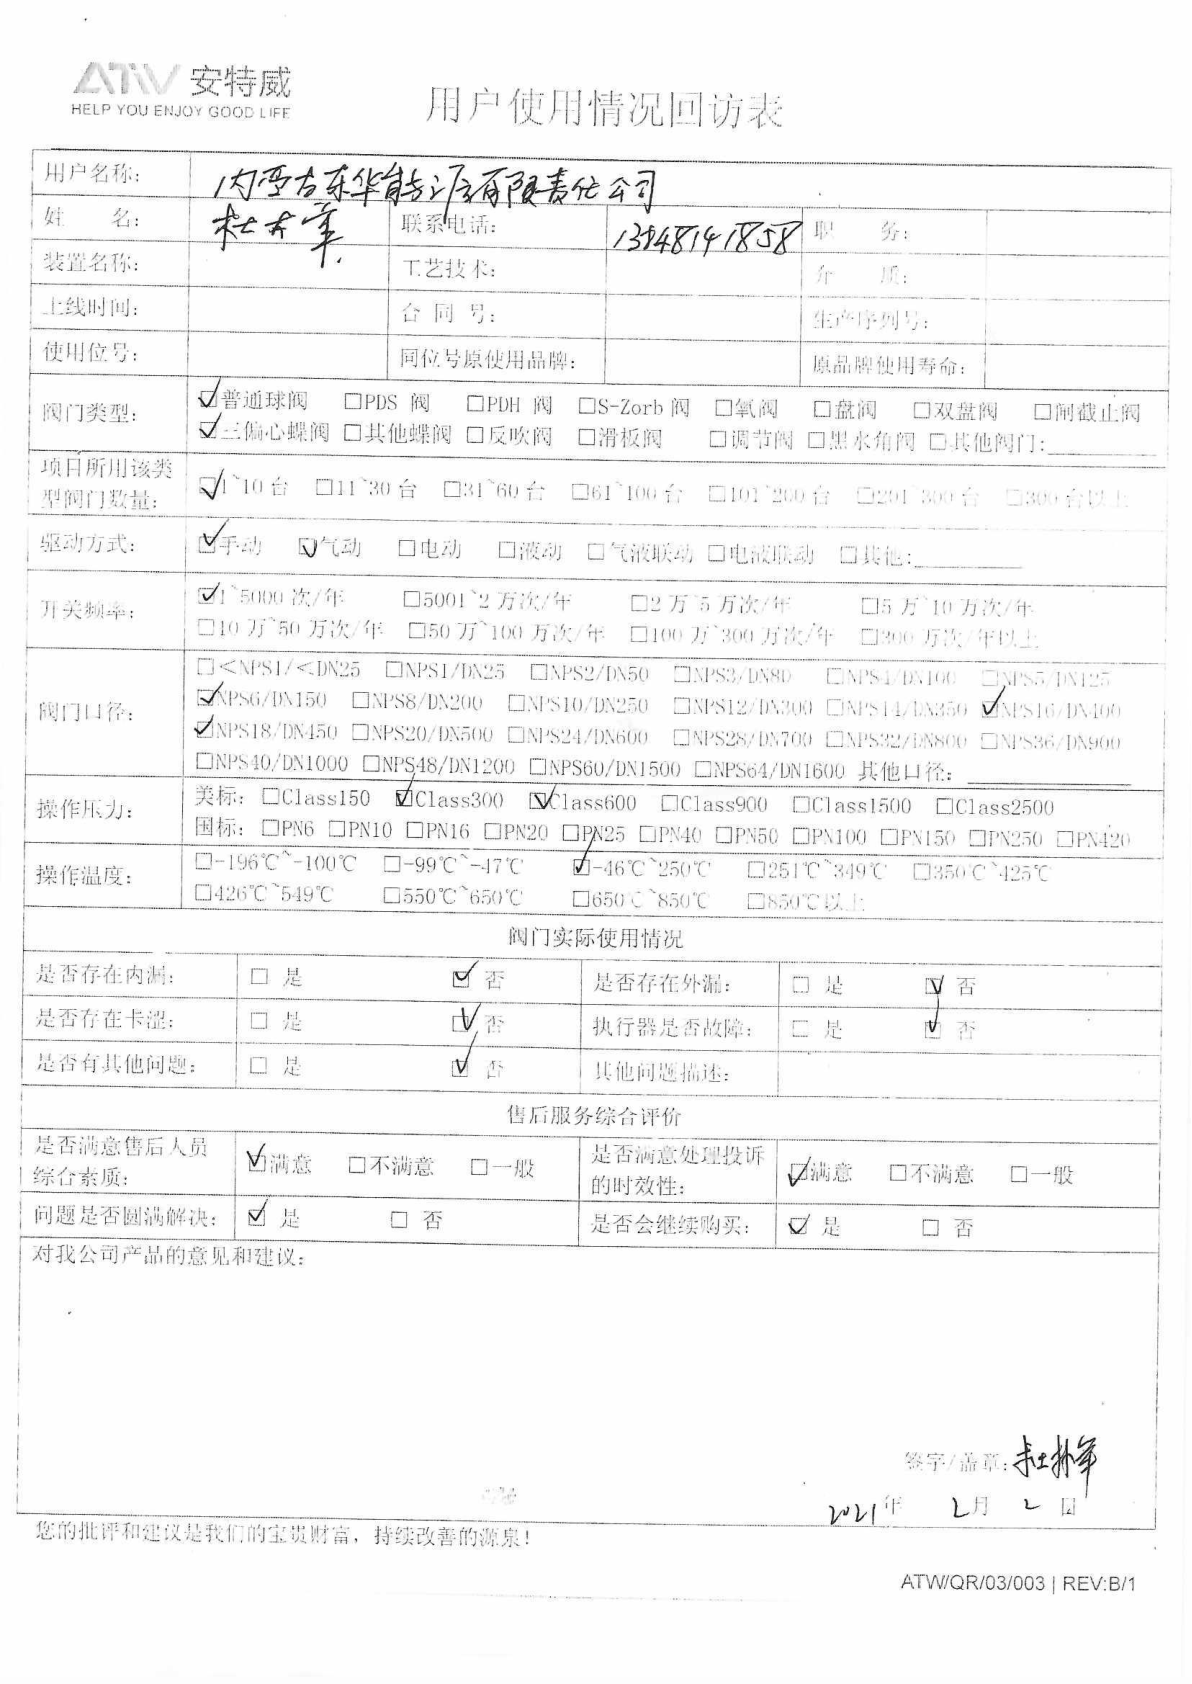 ATW 安特威
HELP YOU ENJOY GOOD LIFE
用户使用情况回访表
用户名称: 内蒙古东华能源有限责任公司
姓 名: 联系电话: 13948141858 职 务:
装置名称: 工艺技术: 介 质:
上线时间: 合 同 号: 生产序列号:
使用位号: 同位号原使用品牌: 原品牌使用寿命:
阀门类型: ☑普通球阀 □PDS 阀 □PDH 阀 □S-Zorb 阀 □氧阀 □盘阀 □双盘阀 □闸截止阀
☑三偏心蝶阀 □其他蝶阀 □反吹阀 □滑板阀 □调节阀 □黑水角阀 □其他阀门:
项目所用该类
型阀门数量: ☑1~10 台 □11~30 台 □31~60 台 □61~100 台 □101~200 台 □201~300 台 □300 台以上
驱动方式: ☑手动 ☑气动 □电动 □液动 □气液联动 □电液联动 □其他:
开关频率: ☑1~5000 次/年 □5001~2 万次/年 □2 万~5 万次/年 □5 万~10 万次/年
□10 万~50 万次/年 □50 万~100 万次/年 □100 万~300 万次/年 □300 万次/年以上
阀门口径: □<NPS1/<DN25 □NPS1/DN25 □NPS2/DN50 □NPS3/DN80 □NPS4/DN100 □NPS5/DN125
☑NPS6/DN150 □NPS8/DN200 □NPS10/DN250 □NPS12/DN300 □NPS14/DN350 ☑NPS16/DN400
☑NPS18/DN450 □NPS20/DN500 □NPS24/DN600 □NPS28/DN700 □NPS32/DN800 □NPS36/DN900
□NPS40/DN1000 □NPS48/DN1200 □NPS60/DN1500 □NPS64/DN1600 其他口径:
操作压力: 美标: □Class150 ☑Class300 ☑Class600 □Class900 □Class1500 □Class2500
国标: □PN6 □PN10 □PN16 □PN20 □PN25 □PN40 □PN50 □PN100 □PN150 □PN250 □PN420
操作温度: □-196℃~-100℃ □-99℃~-47℃ ☑-46℃~250℃ □251℃~349℃ □350℃~425℃
□426℃~549℃ □550℃~650℃ □650℃~850℃ □850℃以上
阀门实际使用情况
是否存在内漏: □ 是 ☑ 否 是否存在外漏: □ 是 ☑ 否
是否存在卡涩: □ 是 ☑ 否 执行器是否故障: □ 是 ☑ 否
是否有其他问题: □ 是 ☑ 否 其他问题描述:
售后服务综合评价
是否满意售后人员
综合素质: ☑满意 □不满意 □一般 是否满意处理投诉
的时效性: ☑满意 □不满意 □一般
问题是否圆满解决: ☑ 是 □ 否 是否会继续购买: ☑ 是 □ 否
对我公司产品的意见和建议:
签字/盖章:
2021年 2月 2 日
您的批评和建议是我们的宝贵财富，持续改善的源泉！
ATW/QR/03/003 | REV:B/1